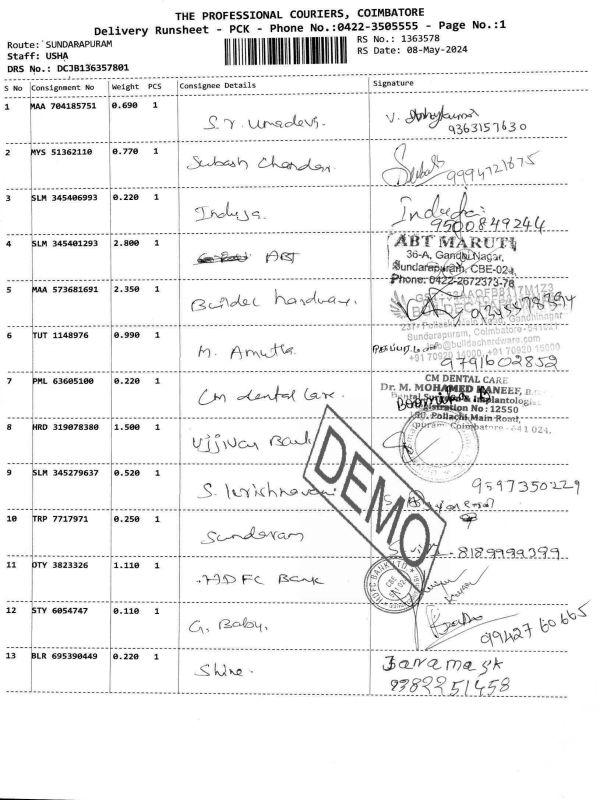 THE PROFESSIONAL COURIERS, COIMBATORE
Delivery Runsheet - PCK - Phone No.:0422-3505555 - Page No.:1
Route: SUNDARAPURAM
RS No.: 1363578
Staff: USHA
RS Date: 08-May-2024
DRS No.: DCJB136357801
S No Consignment No Weight PCS Consignee Details Signature
1 MAA 704185751 0.690 1
S.V. Umadevi.
9363157630
2 MYS 51362110 0.770 1
Subash Chandar.
9994721675
3 SLM 345406993 0.220 1
Induja. Induja
9500849244
4 SLM 345401293 2.800 1
ABT
ABT MARUTI
36-A, Gandhi Nagar,
Sundarapuram, CBE-024,
Phone: 0422-2672373-76
5 MAA 573681691 2.350 1
Builder hardware.
6 TUT 1148976 0.990 1
M. Amutha
9791602852
7 PML 63605100 0.220 1
CM dental care.
CM DENTAL CARE
Dr. M. MOHAMED HANEEF,
Dental Surgeon & Implantologist
Registration No : 12550
Pollachi Main Road,
Coimbatore - 641 024.
8 HRD 319078380 1.500 1
Ujjivan Bank
DEMO
9 SLM 345279637 0.520 1
S. Krishnaveni
9597350229
10 TRP 7717971 0.250 1
Sundaram
8189999399
11 OTY 3823326 1.110 1
HDFC Bank
12 STY 6054747 0.110 1
G. Baby.
9942760665
13 BLR 695390449 0.220 1
Shine.
9382251458